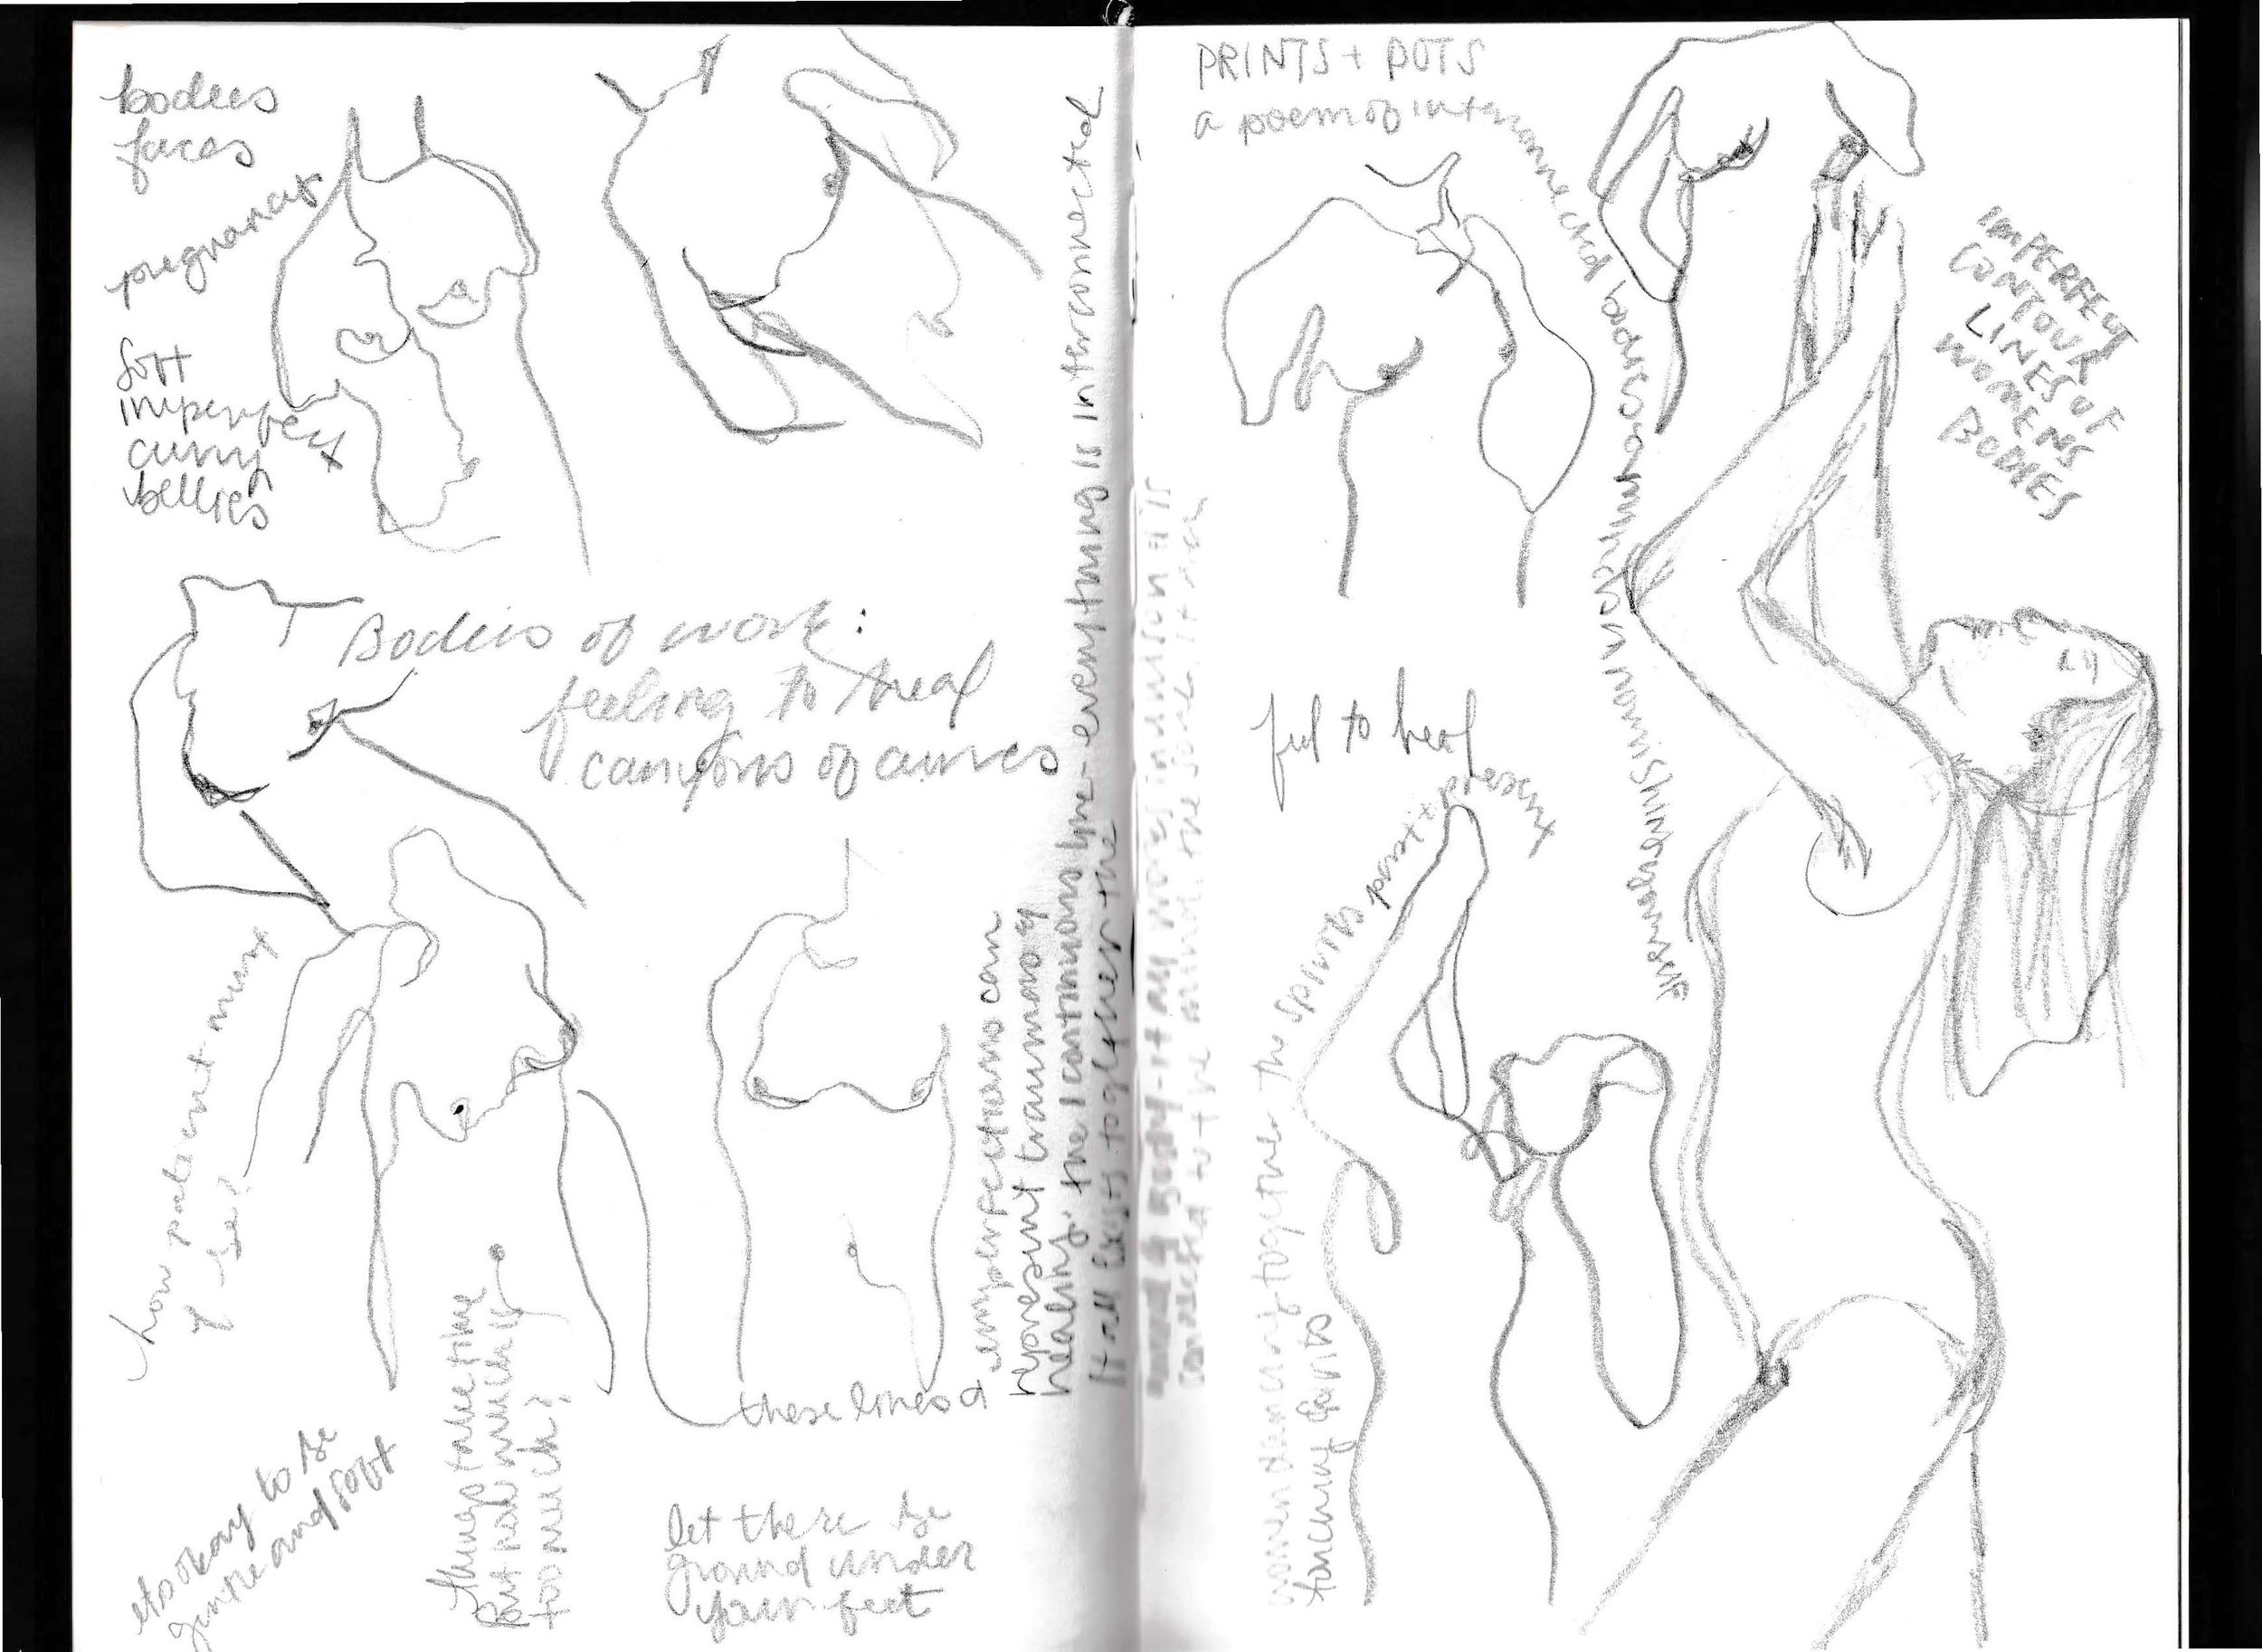 bodies
faces
pregnancy
soft
imperfect
curvy
bellies
Bodies of work:
feeling to heal
canyons of curves
how patient must
y be?
its okay to be
gentle and soft
things take time
but how much is
too much?
let there be
ground under
your feet
these lines &
imperfections can
represent traumas &
healing. the 1 continuous line - everything is interconnected
It all exists together the
mind & Body - it all works in unison it is
connected to the mind, the soul, it
PRINTS + POTS
a poem of interconnected bodies
IMPERFECT
CONTOUR
LINES OF
WOMENS
BODIES
feel to heal
women dancing together the spirits past + present